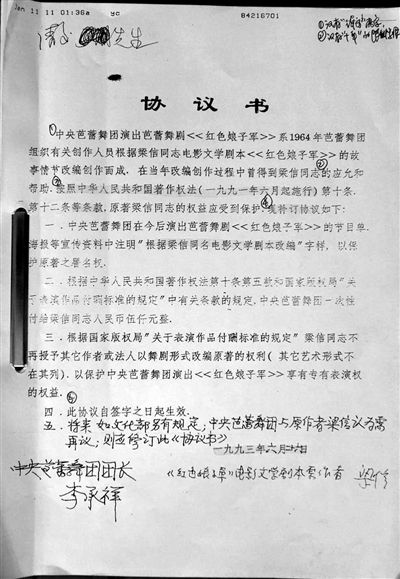 Jan 11 11 01:36a yc 84216701
先生
协议书
①中央芭蕾舞团演出芭蕾舞剧<<红色娘子军>>系1964年芭蕾舞团
组织有关创作人员根据梁信同志电影文学剧本<<红色娘子军>>的故
事情节改编创作而成，在当年改编创作过程中曾得到梁信同志的应允和
帮助。按照中华人民共和国著作权法(一九九一年六月起施行)第十条、
第十二条等条款，原著梁信的权益应受到保护。现特订协议如下：
一．中央芭蕾舞团在今后演出芭蕾舞剧<<红色娘子军>>的节目单、
海报等宣传资料中注明"根据梁信同名电影文学剧本改编"字样，以保
护原著之署名权．
二．根据中华人民共和国著作权法第十条第五款和国家版权局"关
于表演作品付酬标准的规定"中有关条款的规定，中央芭蕾舞团一次性
付给梁信同志人民币伍仟元整．
三．根据国家版权局"关于表演作品付酬标准的规定"梁信同志不
再授予其它作者或法人以舞剧形式改编原著的权利(其它艺术形式不
在其列)．以保护中央芭蕾舞团演出<<红色娘子军>>享有专有表演权
的权益．
四．此协议自签字之日起生效．
五．将来如文化部另有规定，中央芭蕾舞团与原作者梁信认为需
再议，则应修订此《协议书》
一九九三年六月
中央芭蕾舞团团长
李承祥
《红色娘子军》电影文学剧本原作者 梁信